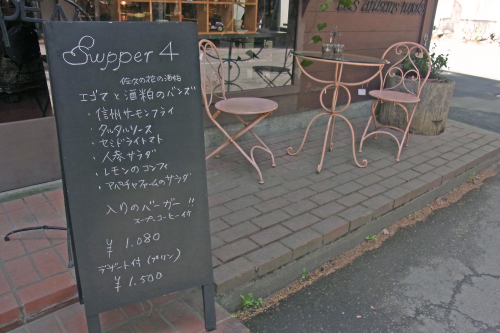 Supper 4
佐久の花の酒粕
エゴマと酒粕のバンズ
・信州サーモンフライ
・タルタルソース
・セミドライトマト
・人参サラダ
・レモンのコンフィ
・アパチャファームのサラダ
入りのバーガー!!
スープ、コーヒー付
¥1.080
デザート付(プリン)
¥1.500